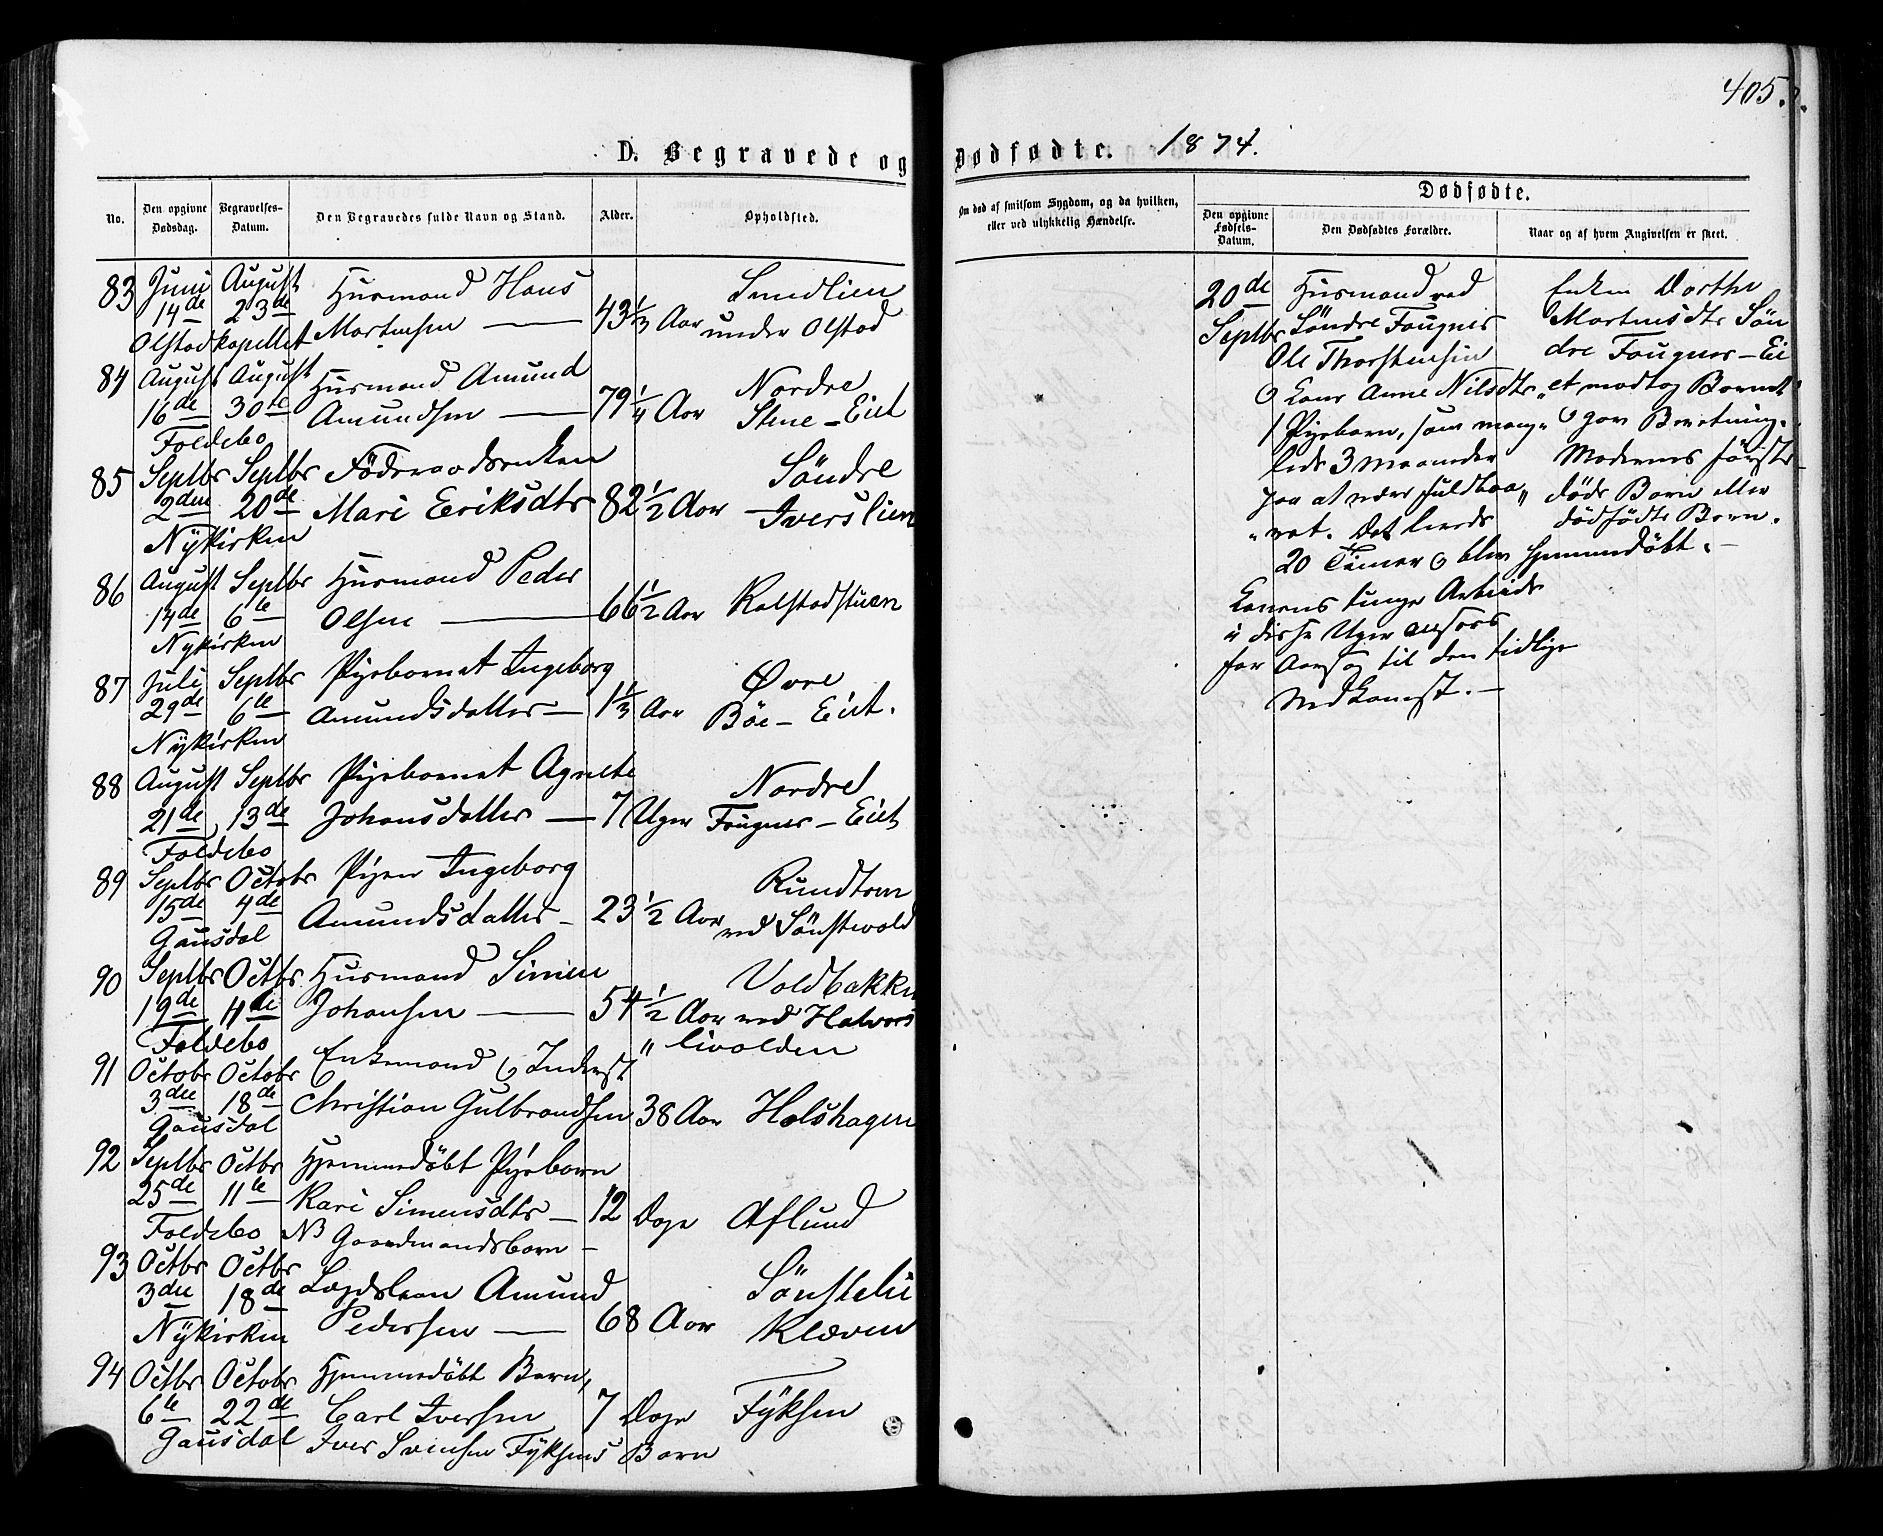 405.
D. Begravede og Dødfødte. 1874.
No.
Den opgivne Dødsdag.
Begravelses-Datum.
Den Begravedes fulde Navn og Stand.
Alder.
Opholdsted.
Om død af smitsom Sygdom, og da hvilken, eller ved ulykkelig Hændelse.
Dødfødte.
Den opgivne Fødsels-Datum.
Den Dødfødtes Forældre.
Naar og af hvem Angivelsen er skeet.
83 Juni August Husmand Hans Smedlien
14de 23de Mortensen — 43 1/3 Aar under Olstad
Olstadkapellet
84 August August Husmand Amund Nordre
16de 30te Amundsen — 79 1/4 Aar Stene - Eiet
Foldebo
85 Septbr Septbr Föderaadsenken Søndre
2den 20de Mari Eriksdtr 82 1/2 Aar Iverslien
Nÿkirken
86 August Septbr Husmand Peder
14de 6te Olsen — 66 1/2 Aar Kalstadstuen
Nykirken
87 Juli Septbr Pigebarnet Ingeborg Øvre
29de 6te Amundsdatter — 1 1/3 Aar Böe - Eiet.
Nÿkirken
88 August Septbr Pigebarnet Agnete Nordre
21de 13de Johansdatter — 7 Uger Fougner - Eiet
Foldebo
89 Septbr Octobr Pigen Ingeborg Rundtom
15de 4de Amundsdatter — 23 1/2 Aar ved Sönstevold
Gausdal
90 Septbr Octbr Husmand Simen Voldbakken
19de 11te Johansen — 54 1/2 Aar ved Halvors
Foldebo " livolden
91 Octobr Octobr Enkemand og Inderst
3die 18de Christian Gulbrandsen 38 Aar Holshagen
Gausdal
92 Septbr Octbr Hjemmedöbt Pigebarn
25de 11te Kari Simensdtr — 12 Dage Aflund
Foldebo NB Gaardmandsbarn —
93 Octbr Octbr Lægdslem Amund Sönsteli
3die 18de Pedersen — 68 Aar Kleven
Nÿkirken
94 Octbr Octobr Hjemmedöbt Barn,
6te 22de Carl Iversen 7 Dage Fÿksen
Gausdal Iver Svensen Fÿksens Barn
20de Septbr
Husmand ved
Söndre Fougner
Ole Thorstensen
og Kone Anne Nilsdtr
1 Pigebarn, som mang„
lede 3 Maaneder
paa at være fuldbaa„
„ret. Det levede
20 Timer og blev hjemmedöbt. —
Konens tunge Arbeide
i disse Uger ansees
for Aarsag til den tidlige
Nedkomst. —
Enken Dorthe
Mortensdtr Sön
dre Fougner - Ei
„et modtog Barnet
og gav Beretning.
Moderens förste
döde Barn eller
dödfödte Barn.